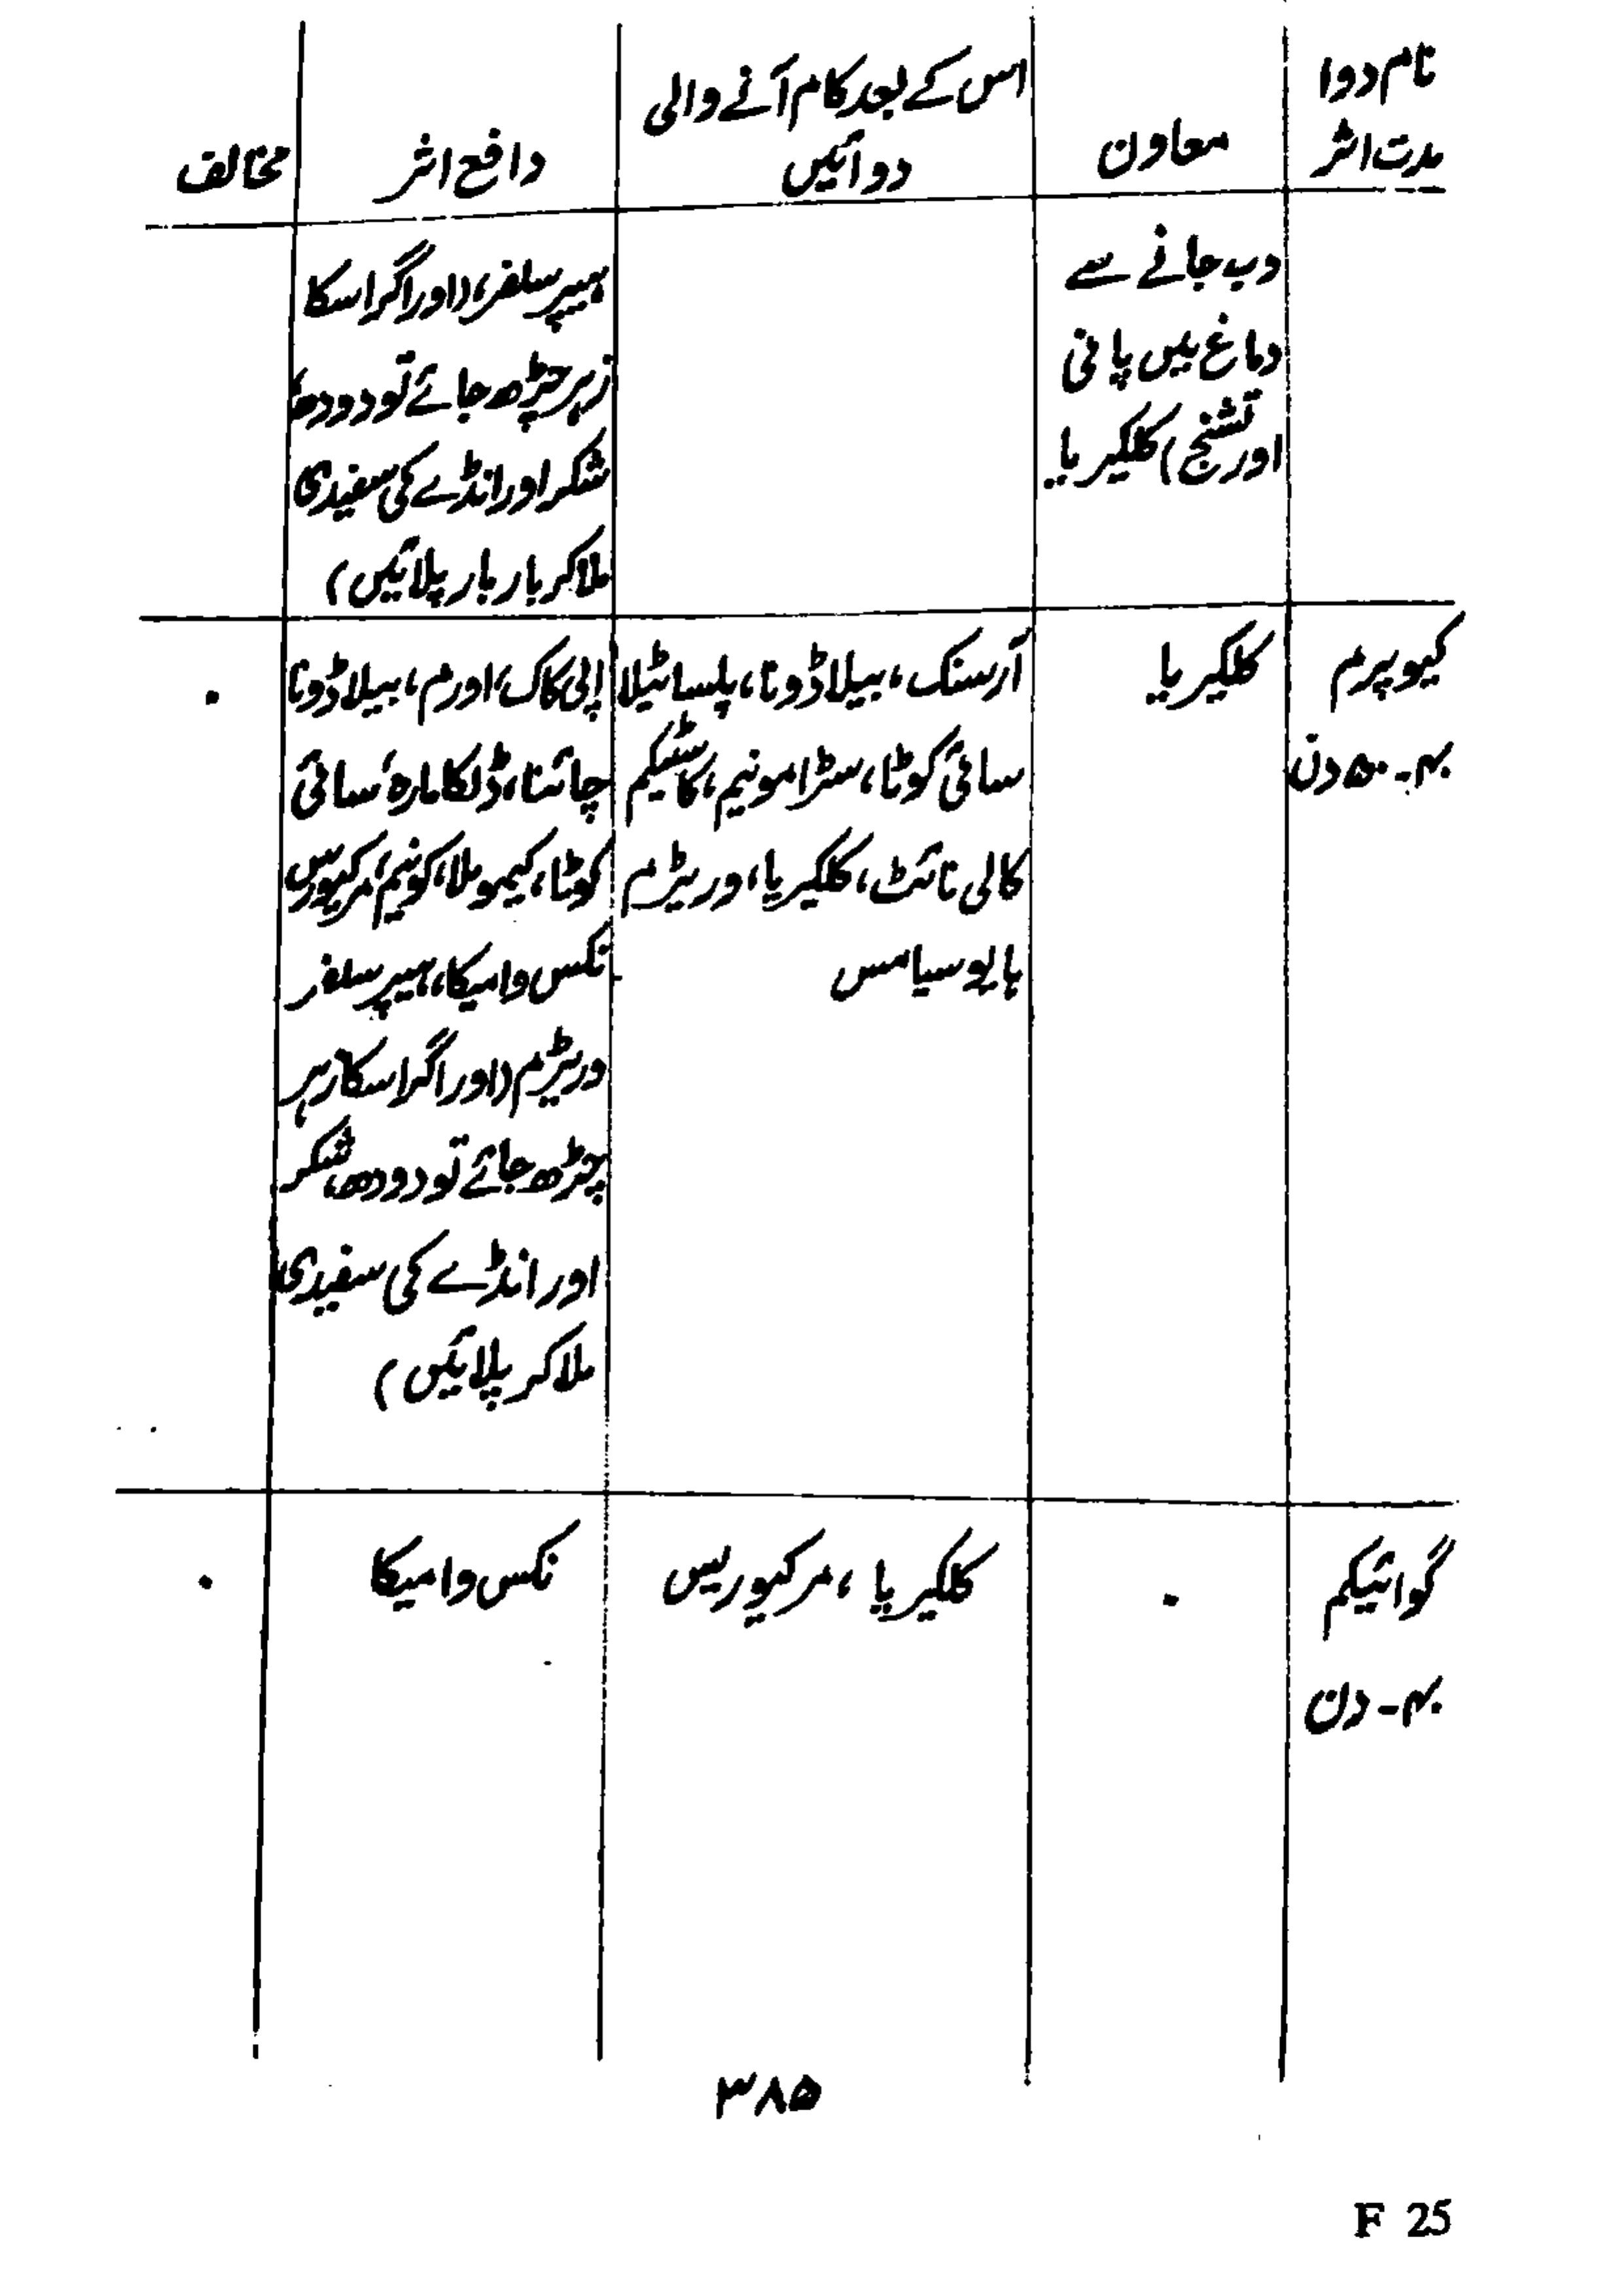 نام دوا
مدت اثر
معاون
اس کے بعد کام آنے والی
دوائیں
دافع اثر
مخالف
دب جانے سے
دماغ میں پانی
اور تشنج) کلکیریا۔
ہیپر سلفر، (اور اگر اسکا
زہر چڑھ جائے تو دودھ،
شکر اور انڈے کی سفیدی
ملا کر بار بار پلائیں)
کیوپرم
۴۰ - ۵۰ دن
کلکیریا
آرسنک، بیلاڈونا، پلساٹیلا
سائی کوٹا، سٹرامونیم، کاسٹیکم
کالی نائٹ، کلکیریا، وریٹرم
ہایوسیامس
اپی کاک، اورم، بیلاڈونا
چائنا، ڈلکامارہ، سائی
کوٹا، کیمومِلا، کونیم، مرکیورس
نکس وامیکا، ہیپر سلفر
وریٹرم (اور اگر اسکا زہر
چڑھ جائے تو دودھ، شکر
اور انڈے کی سفیدی
ملا کر پلائیں)
۰
گوائیکم
۴۰ - دن
۰
کلکیریا، مرکیوریس
نکس وامیکا
۰
۳۸۵
F 25